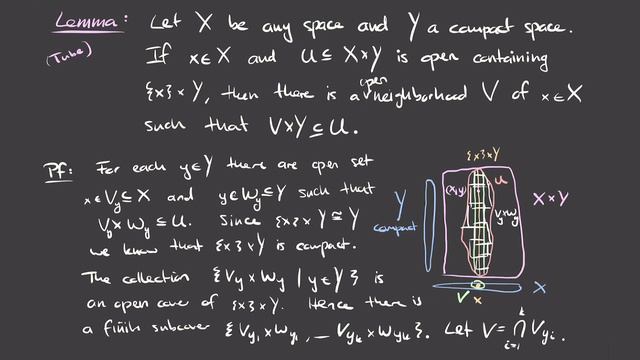 Lemma: Let X be any space and Y a compact space.
(Tube) If x∈X and U⊆X×Y is open containing
{x}×Y, then there is a open neighborhood V of x∈X
such that V×Y⊆U.
Pf: For each y∈Y there are open set
x∈V_y⊆X and y∈W_y⊆Y such that
V_y×W_y⊆U. Since {x}×Y≅Y
we know that {x}×Y is compact.
The collection {V_y×W_y | y∈Y} is
an open cover of {x}×Y. Hence there is
a finite subcover {V_{y_1}×W_{y_1}, ... V_{y_k}×W_{y_k}}. Let V=⋂_{i=1}^{k} V_{y_i}.
{x}×Y
(x,y) U
Y V_y×W_y X×Y
compact
V x X